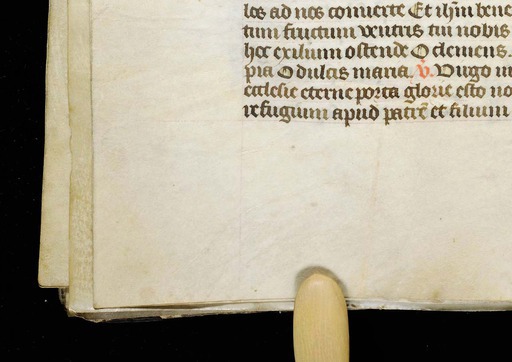 los ad nos conuerte Et ihm̄ bene
tum fructum ventris tui nobis
hoc exilium ostende O clemens.
pia O dulcis maria. v̄. Uirgo m
ecclesie eterne porta glorie esto no
refugium apud patrē et filium